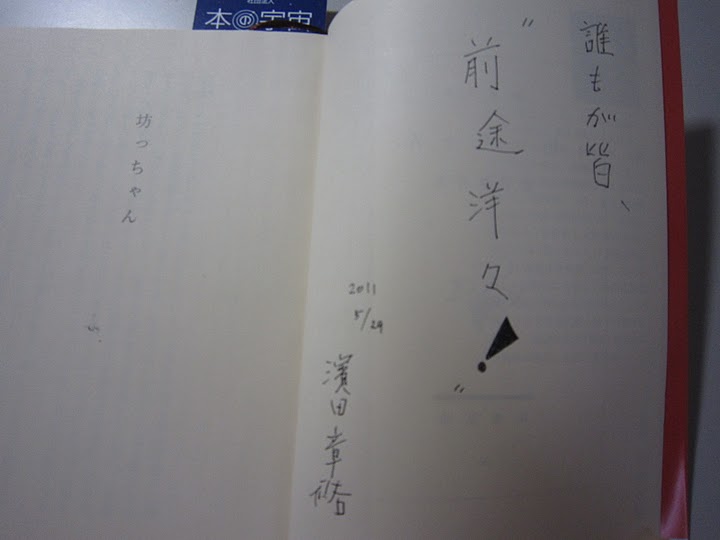 社団法人
本の宇宙
誰もが皆、
"前途洋々!"
2011
5/29
濱田章裕
坊っちゃん
5